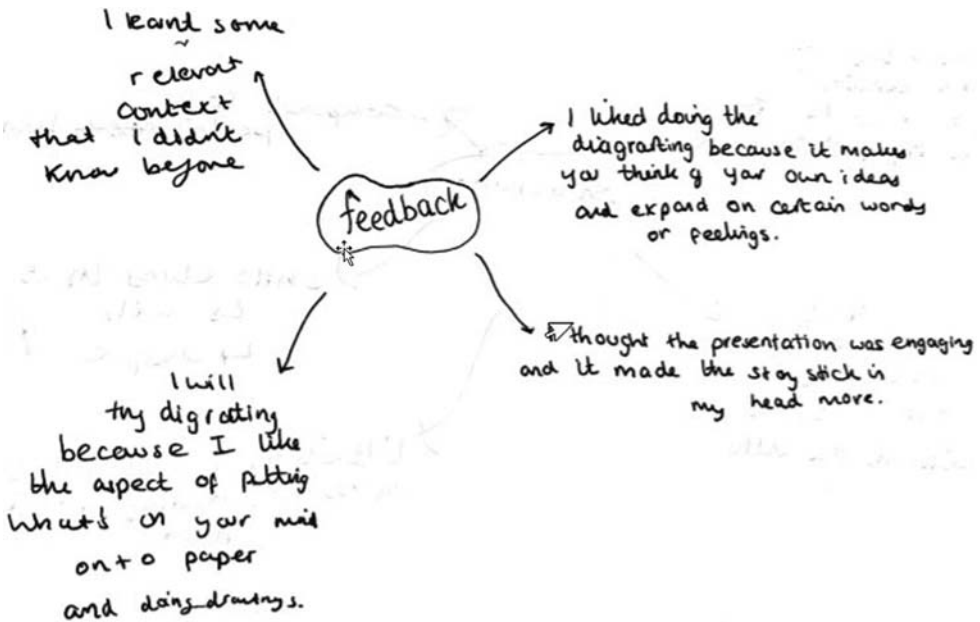 I learnt some
relevant
context
that i didn't
know before
feedback
I liked doing the
diagrafting because it makes
you think of your own ideas
and expand on certain words
or feelings.
thought the presentation was engaging
and it made the story stick in
my head more.
I will
try digrafting
because I like
the aspect of putting
what's on your mind
onto paper
and doing drawings.